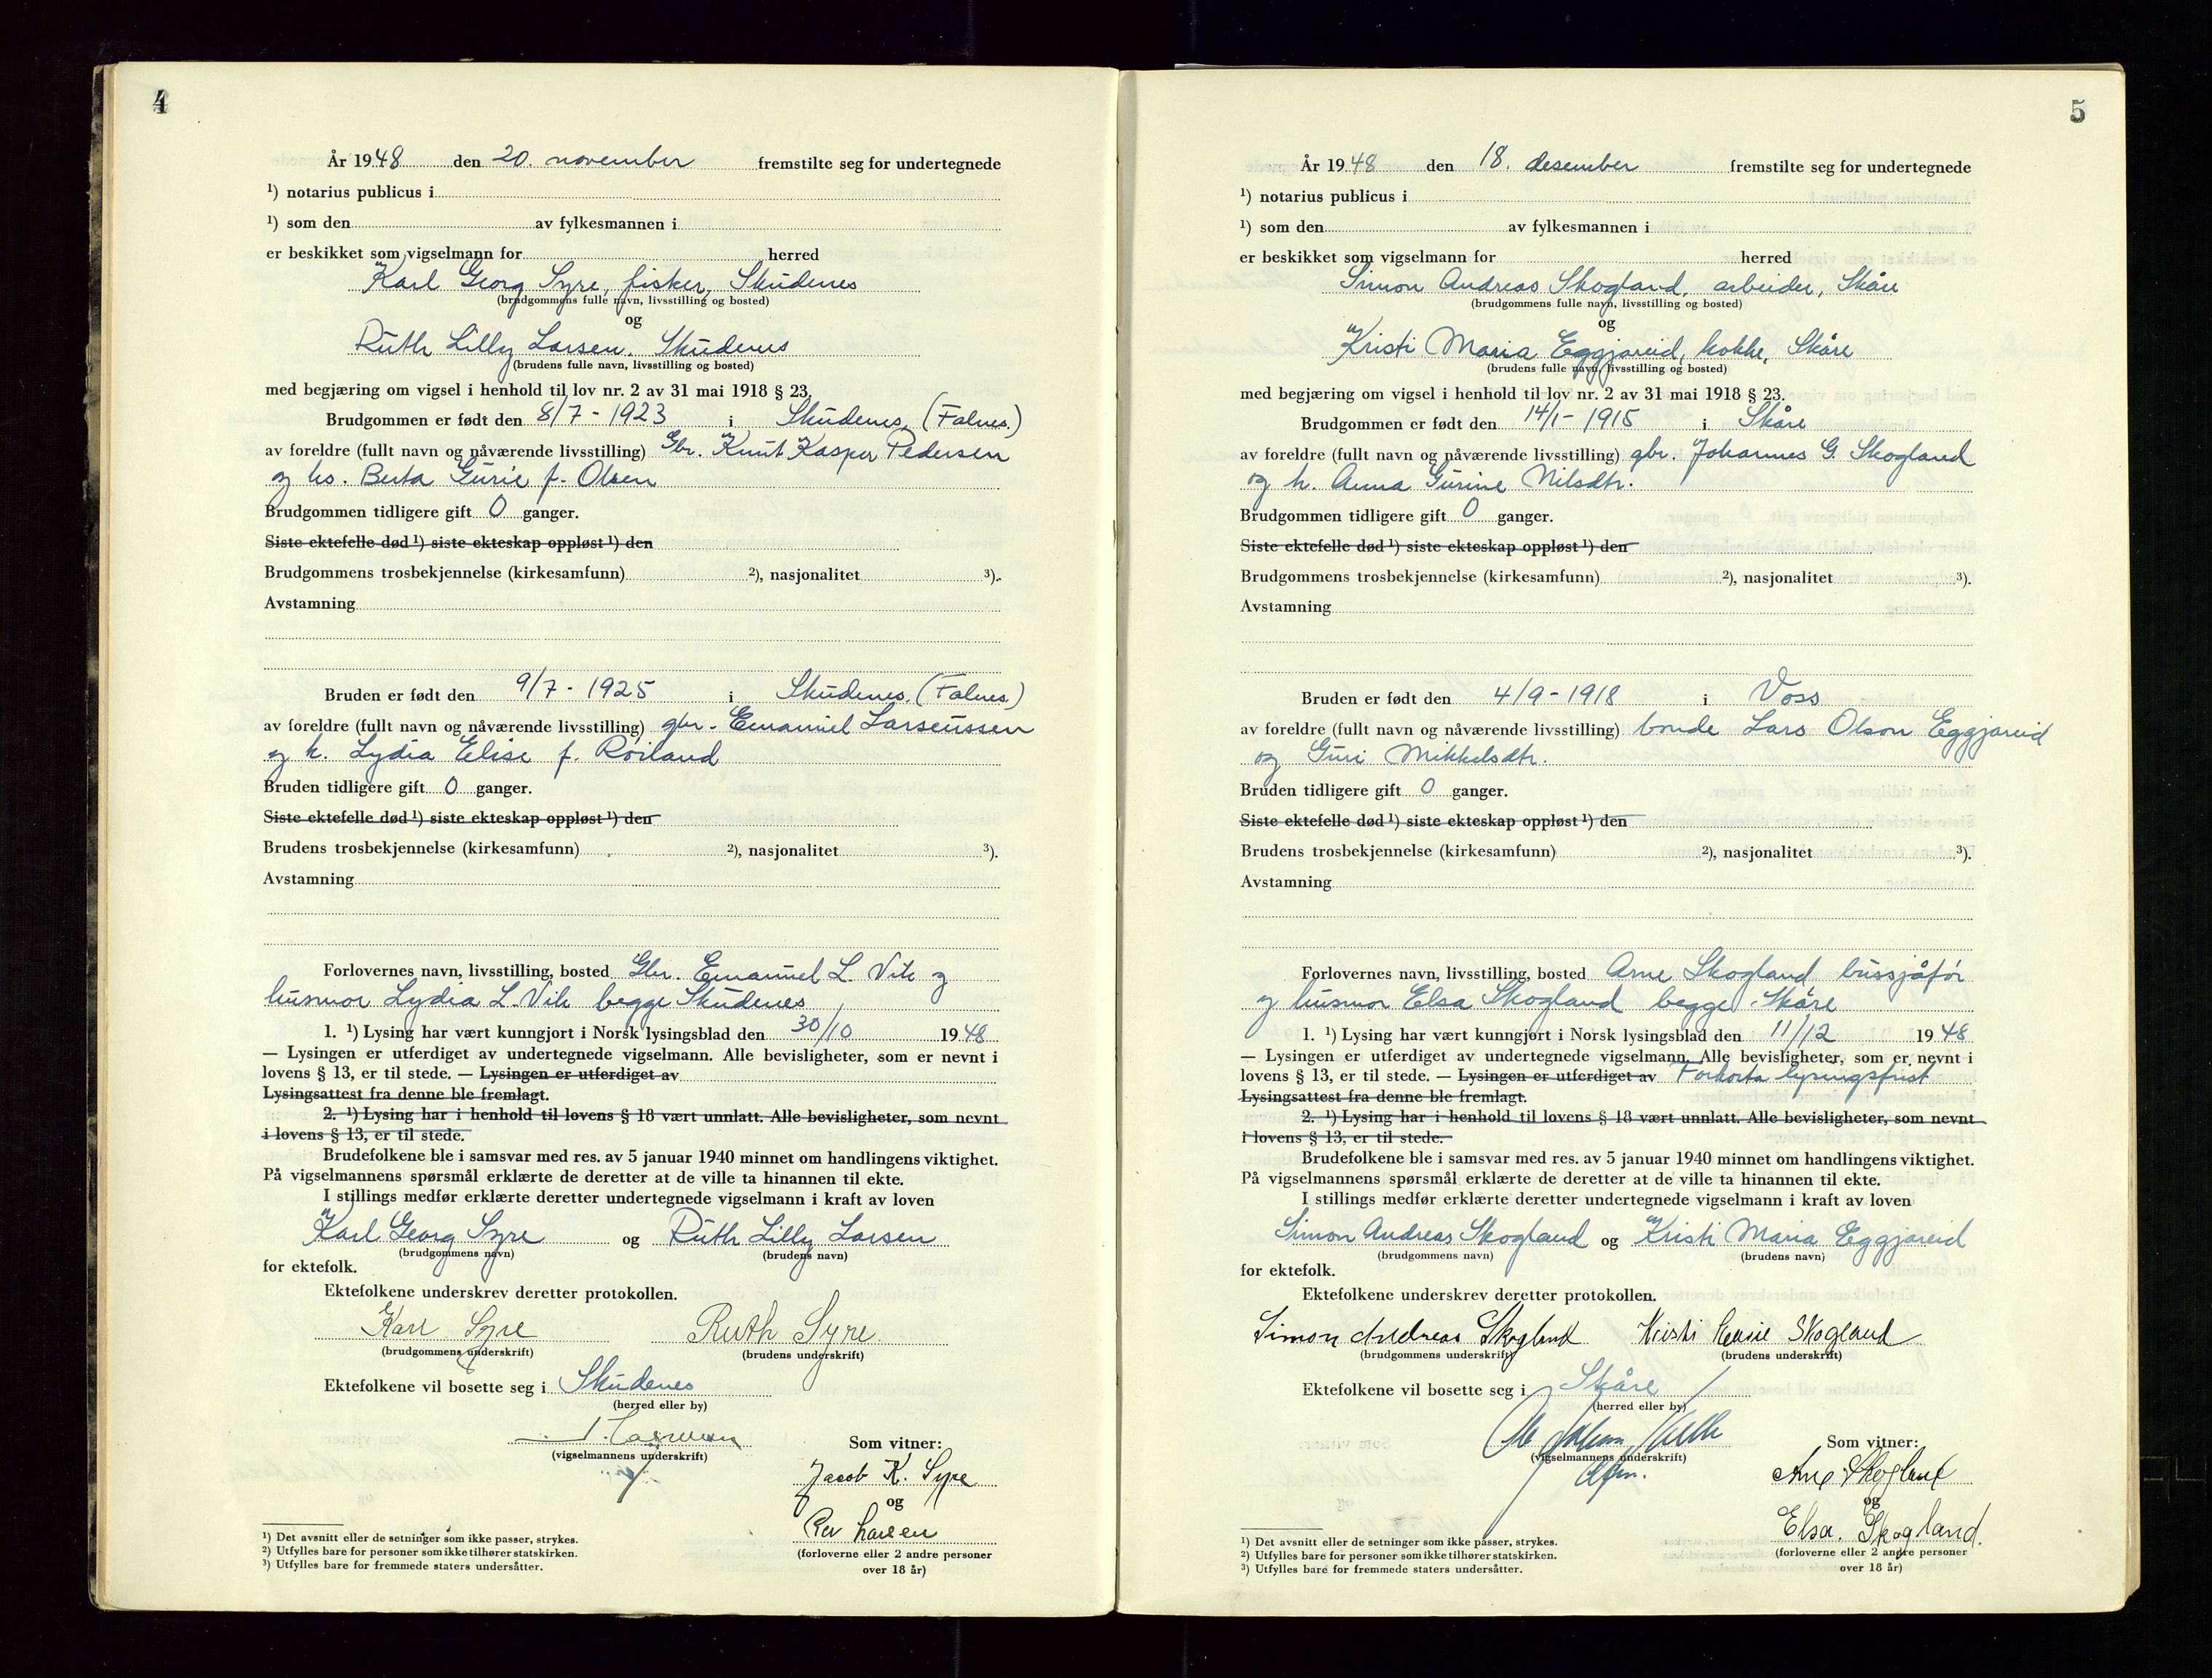 4
År 1948 den 20. november fremstilte seg for undertegnede
¹) notarius publicus i
¹) som den av fylkesmannen i
er beskikket som vigselmann for herred
Karl Georg Syre, fisker, Skudenes
(brudgommens fulle navn, livsstilling og bosted)
og
Ruth Lilly Larsen. Skudenes
(brudens fulle navn, livsstilling og bosted)
med begjæring om vigsel i henhold til lov nr. 2 av 31 mai 1918 § 23.
Brudgommen er født den 8/7 - 1923 i Skudenes, (Falnes.)
av foreldre (fullt navn og nåværende livsstilling) Gbr. Knut Kasper Pedersen
og hs. Berta Gurie f. Olsen
Brudgommen tidligere gift 0 ganger.
Siste ektefelle død ¹) siste ekteskap oppløst ¹) den
Brudgommens trosbekjennelse (kirkesamfunn) ²), nasjonalitet ³).
Avstamning
Bruden er født den 9/7 - 1925 i Skudenes. (Falnes.)
av foreldre (fullt navn og nåværende livsstilling) gbr. Emanuel Larseussen
og h. Lydia Elise f. Roiland
Bruden tidligere gift 0 ganger.
Siste ektefelle død ¹) siste ekteskap oppløst ¹) den
Brudens trosbekjennelse (kirkesamfunn) ²), nasjonalitet ³).
Avstamning
Forlovernes navn, livsstilling, bosted Gbr. Emanuel L. Vik og
husmor Lydia L. Vik begge Skudenes
1. ¹) Lysing har vært kunngjort i Norsk lysingsblad den 30/10 1948
— Lysingen er utferdiget av undertegnede vigselmann. Alle bevisligheter, som er nevnt i
lovens § 13, er til stede. — Lysingen er utferdiget av
Lysingsattest fra denne ble fremlagt.
2. ¹) Lysing har i henhold til lovens § 18 vært unnlatt. Alle bevisligheter, som nevnt
i lovens § 13, er til stede.
Brudefolkene ble i samsvar med res. av 5 januar 1940 minnet om handlingens viktighet.
På vigselmannens spørsmål erklærte de deretter at de ville ta hinannen til ekte.
I stillings medfør erklærte deretter undertegnede vigselmann i kraft av loven
Karl Georg Syre og Ruth Lilly Larsen
(brudgommens navn) (brudens navn)
for ektefolk.
Ektefolkene underskrev deretter protokollen.
Karl Syre Ruth Syre
(brudgommens underskrift) (brudens underskrift)
Ektefolkene vil bosette seg i Skudenes
(herred eller by)
(vigselmannens underskrift)
Som vitner:
Jacob K. Syre
og
Larsen
(forloverne eller 2 andre personer
over 18 år)
¹) Det avsnitt eller de setninger som ikke passer, strykes.
²) Utfylles bare for personer som ikke tilhører statskirken.
³) Utfylles bare for fremmede staters undersåtter.
5
År 1948 den 18. desember fremstilte seg for undertegnede
¹) notarius publicus i
¹) som den av fylkesmannen i
er beskikket som vigselmann for herred
Simon Andreas Skogland, arbeider, Skåre
(brudgommens fulle navn, livsstilling og bosted)
og
Kristi Maria Eggjareid, kokke, Skåre
(brudens fulle navn, livsstilling og bosted)
med begjæring om vigsel i henhold til lov nr. 2 av 31 mai 1918 § 23.
Brudgommen er født den 14/1 - 1915 i Skåre
av foreldre (fullt navn og nåværende livsstilling) gbr. Johannes G. Skogland
og h. Anna Gurine Nilsdtr.
Brudgommen tidligere gift 0 ganger.
Siste ektefelle død ¹) siste ekteskap oppløst ¹) den
Brudgommens trosbekjennelse (kirkesamfunn) ²), nasjonalitet ³).
Avstamning
Bruden er født den 4/9 - 1918 i Voss
av foreldre (fullt navn og nåværende livsstilling) bonde Lars Olson Eggjareid
og Guri Mikkelsdtr.
Bruden tidligere gift 0 ganger.
Siste ektefelle død ¹) siste ekteskap oppløst ¹) den
Brudens trosbekjennelse (kirkesamfunn) ²), nasjonalitet ³).
Avstamning
Forlovernes navn, livsstilling, bosted Arne Skogland bussjåfør
og husmor Elsa Skogland begge Skåre
1. ¹) Lysing har vært kunngjort i Norsk lysingsblad den 11/12 1948
— Lysingen er utferdiget av undertegnede vigselmann. Alle bevisligheter, som er nevnt i
lovens § 13, er til stede. — Lysingen er utferdiget av Forkorta lysingsfrist
Lysingsattest fra denne ble fremlagt.
2. ¹) Lysing har i henhold til lovens § 18 vært unnlatt. Alle bevisligheter, som nevnt
i lovens § 13, er til stede.
Brudefolkene ble i samsvar med res. av 5 januar 1940 minnet om handlingens viktighet.
På vigselmannens spørsmål erklærte de deretter at de ville ta hinannen til ekte.
I stillings medfør erklærte deretter undertegnede vigselmann i kraft av loven
Simon Andreas Skogland og Kristi Maria Eggjareid
(brudgommens navn) (brudens navn)
for ektefolk.
Ektefolkene underskrev deretter protokollen.
Simon Andreas Skogland Kristi Marie Skogland
(brudgommens underskrift) (brudens underskrift)
Ektefolkene vil bosette seg i Skåre
(herred eller by)
(vigselmannens underskrift)
Som vitner:
Arne Skogland
og
Elsa. Skogland.
(forloverne eller 2 andre personer
over 18 år)
¹) Det avsnitt eller de setninger som ikke passer, strykes.
²) Utfylles bare for personer som ikke tilhører statskirken.
³) Utfylles bare for fremmede staters undersåtter.